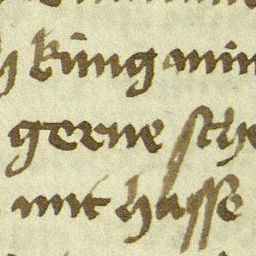 h kúng min
gerne sche
mit hasse